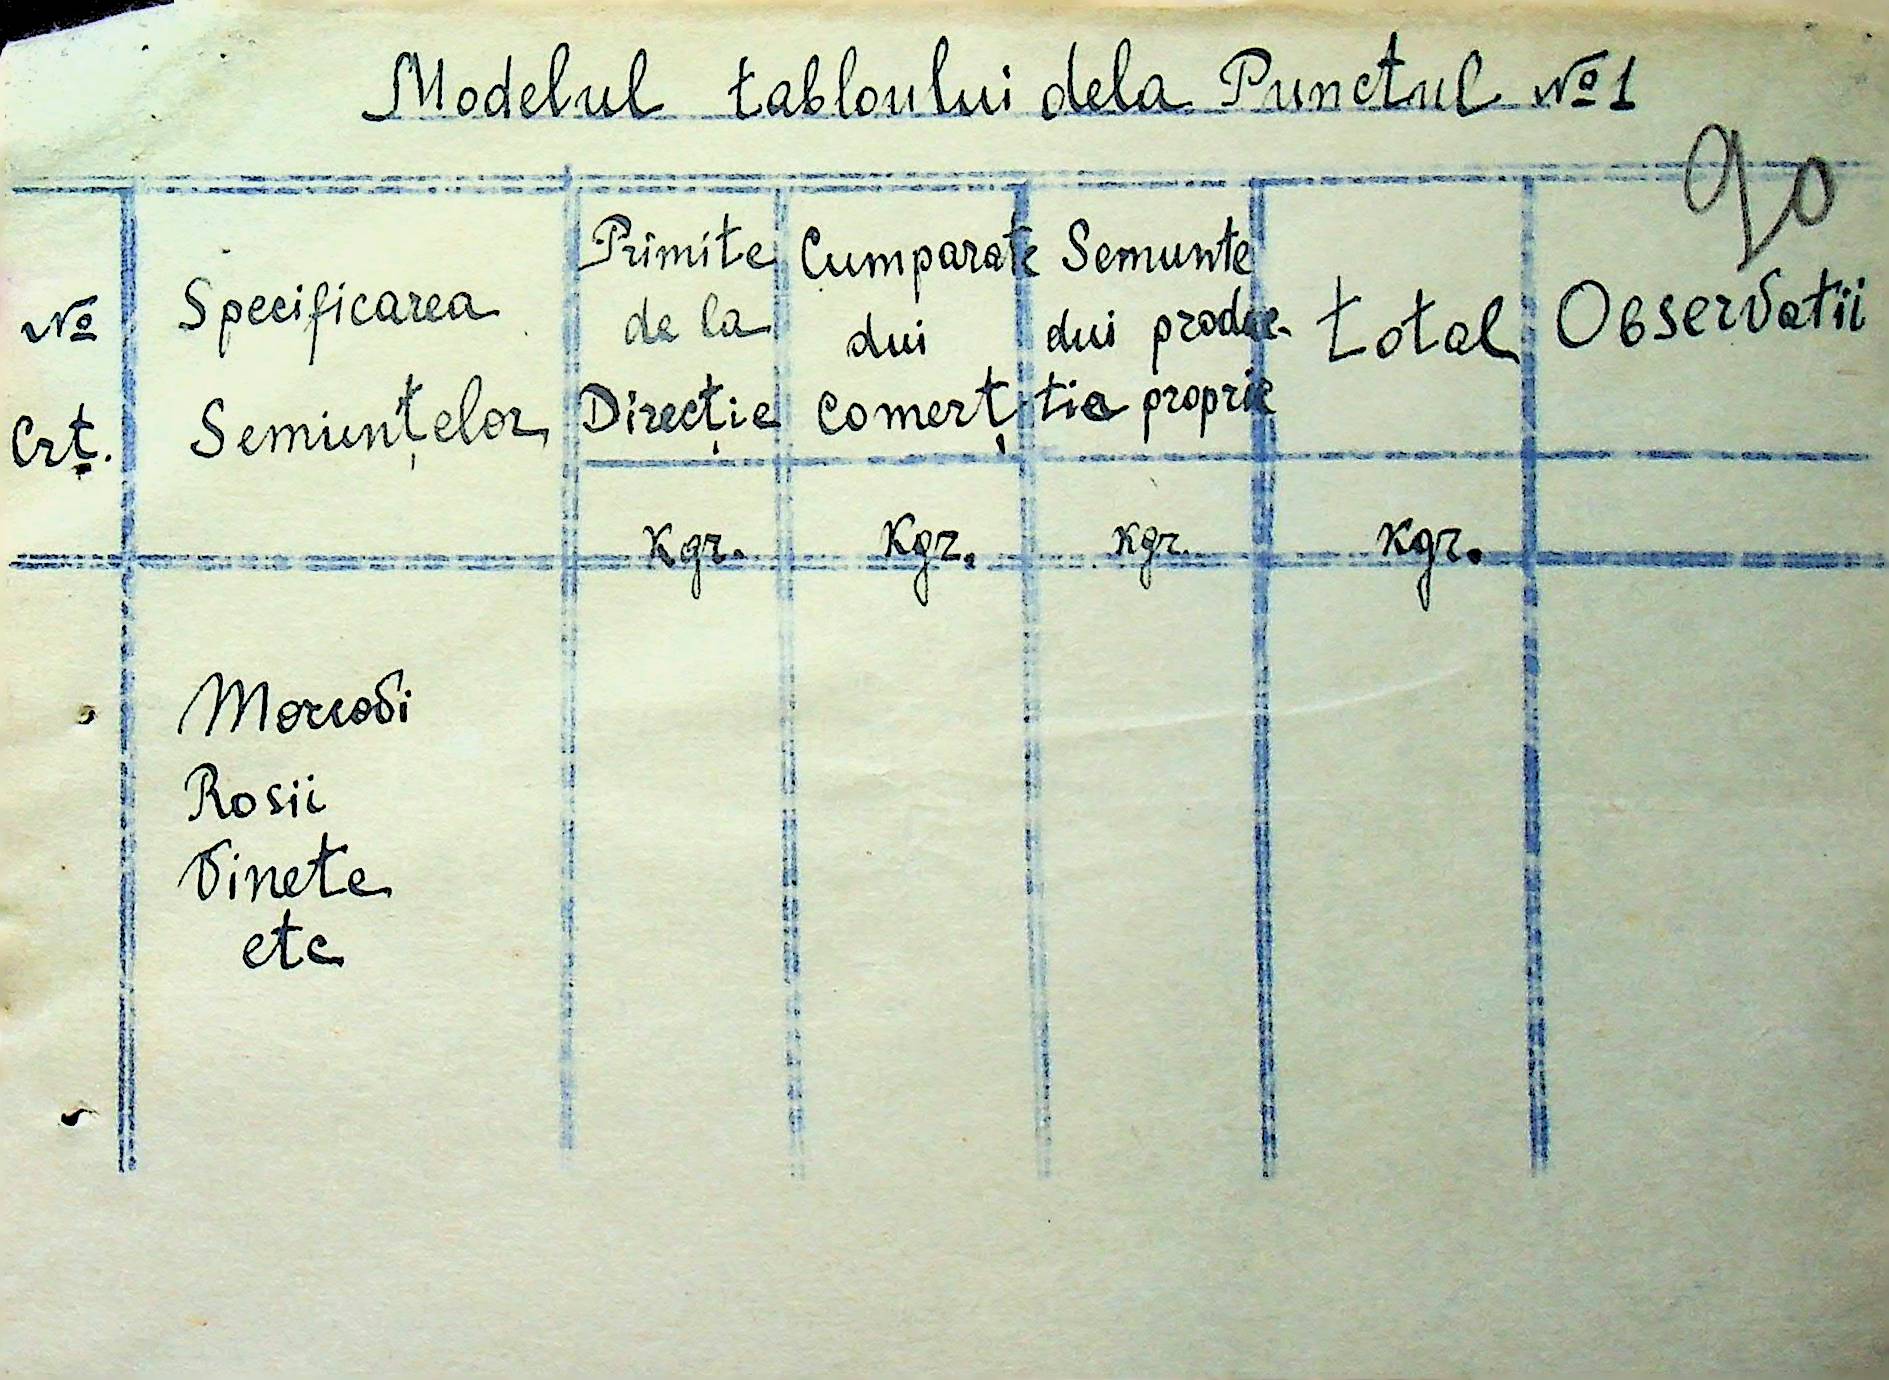 Modelul tabloului dela Punctul № 1
90
№ Crt.
Specificarea
Semiunțelor
Primite
de la
Direcție
Cumparate
dui
comerț
Semunte
dui produc-
tia proprie
total
Observatii
Kgr.
Kgr.
Kgr.
Kgr.
Morcovi
Rosii
Vinete
etc